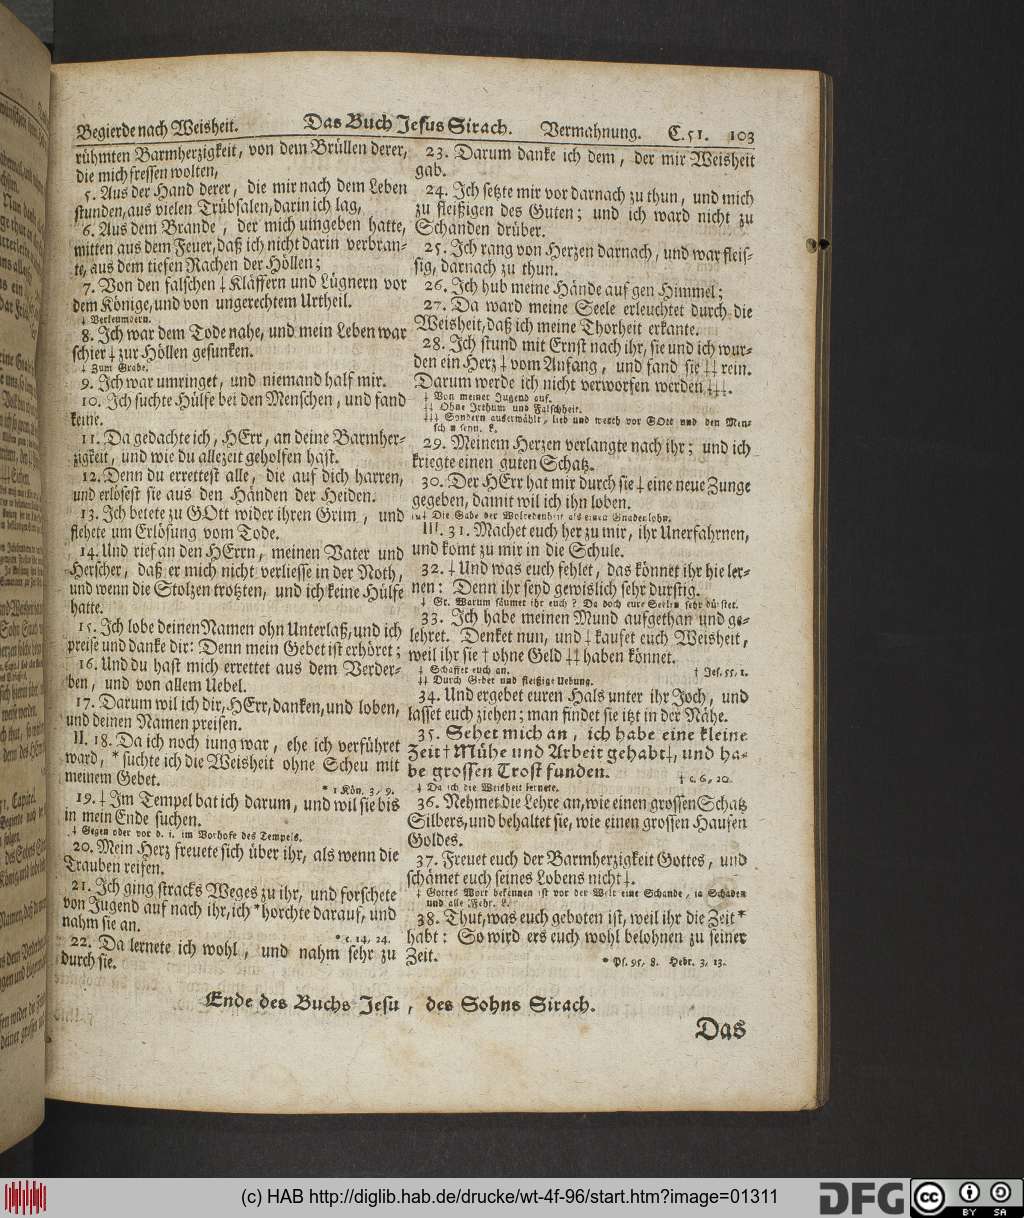 Begierde nach Weisheit. Das Buch Jesus Sirach. Vermahnung. C. 51. 103
rühmten Barmherzigkeit, von dem Brüllen derer,
die mich fressen wolten,
5. Aus der Hand derer, die mir nach dem Leben
stunden, aus vielen Trübsalen, darin ich lag,
6. Aus dem Brande, der mich umgeben hatte,
mitten aus dem Feuer, daß ich nicht darin verbran-
te, aus dem tiefen Rachen der Höllen;
7. Von den falschen ‡ Kläffern und Lügnern vor
dem Könige, und von ungerechtem Urtheil.
‡ Verleumdern.
8. Ich war dem Tode nahe, und mein Leben war
schier ‡ zur Höllen gesunken.
‡ Zum Grabe.
9. Ich war umringet, und niemand half mir.
10. Ich suchte Hülfe bei den Menschen, und fand
keine.
11. Da gedachte ich, HErr, an deine Barmher-
zigkeit, und wie du allezeit geholfen hast.
12. Denn du errettest alle, die auf dich harren,
und erlösest sie aus den Händen der Heiden.
13. Ich betete zu GOtt wider ihren Grim, und
flehete um Erlösung vom Tode.
14. Und rief an den HErrn, meinen Vater und
Herscher, daß er mich nicht verliesse in der Noth,
und wenn die Stolzen trotzten, und ich keine Hülfe
hatte.
15. Ich lobe deinen Namen ohn Unterlaß, und ich
preise und danke dir: Denn mein Gebet ist erhöret;
16. Und du hast mich errettet aus dem Verder-
ben, und von allem Uebel.
17. Darum wil ich dir, HErr, danken, und loben,
und deinen Namen preisen.
II. 18. Da ich noch iung war, ehe ich verführet
ward, * suchte ich die Weisheit ohne Scheu mit
meinem Gebet. * 1 Kön. 3, 9.
19. ‡ Im Tempel bat ich darum, und wil sie bis
in mein Ende suchen.
‡ Gegen oder vor d. i. im Vorhofe des Tempels.
20. Mein Herz freuete sich über ihr, als wenn die
Trauben reifen.
21. Ich ging stracks Weges zu ihr, und forschete
von Jugend auf nach ihr, ich * horchte darauf, und
nahm sie an. * c. 14, 24.
22. Da lernete ich wohl, und nahm sehr zu
durch sie.
23. Darum danke ich dem, der mir Weisheit
gab.
24. Ich setzte mir vor darnach zu thun, und mich
zu fleißigen des Guten; und ich ward nicht zu
Schanden drüber.
25. Ich rang von Herzen darnach, und war fleis-
sig, darnach zu thun.
26. Ich hub meine Hände auf gen Himmel;
27. Da ward meine Seele erleuchtet durch die
Weisheit, daß ich meine Thorheit erkante.
28. Ich stund mit Ernst nach ihr, sie und ich wur-
den ein Herz ‡ vom Anfang, und fand sie ‡‡ rein.
Darum werde ich nicht verworfen werden ‡‡‡.
‡ Von meiner Jugend auf.
‡‡ Ohne Irthum und Falschheit.
‡‡‡ Sondern auserwählt, lieb und werth vor GOtt und den Men-
schen seyn. k.
29. Meinem Herzen verlangte nach ihr; und ich
kriegte einen guten Schatz.
30. Der HErr hat mir durch sie ‡ eine neue Zunge
gegeben, damit wil ich ihn loben.
‡ Die Gabe der Wolredenheit als einen Gnadenlohn.
III. 31. Machet euch her zu mir, ihr Unerfahrnen,
und komt zu mir in die Schule.
32. ‡ Und was euch fehlet, das könnet ihr hie ler-
nen: Denn ihr seyd gewislich sehr durstig.
‡ Gr. Warum säumet ihr euch? Da doch eure Seelen sehr dürstet.
33. Ich habe meinen Mund aufgethan und ge-
lehret. Denket nun, und ‡ kaufet euch Weisheit,
weil ihr sie † ohne Geld ‡‡ haben könnet.
‡ Schaffet euch an. † Jes. 55, 1.
‡‡ Durch Gebet und fleißige Uebung.
34. Und ergebet euren Hals unter ihr Joch, und
lasset euch ziehen; man findet sie itzt in der Nähe.
35. Sehet mich an, ich habe eine kleine
Zeit † Mühe und Arbeit gehabt ‡, und ha-
be grossen Trost funden. † c. 6, 20.
‡ Da ich die Weisheit lernete.
36. Nehmet die Lehre an, wie einen grossen Schatz
Silbers, und behaltet sie, wie einen grossen Haufen
Goldes.
37. Freuet euch der Barmherzigkeit Gottes, und
schämet euch seines Lobens nicht ‡.
‡ Gottes Wort bekennen ist vor der Welt eine Schande, ia Schaden
und alle Fehr. L.
38. Thut, was euch geboten ist, weil ihr die Zeit *
habt: So wird ers euch wohl belohnen zu seiner
Zeit. * Ps. 95, 8. Hebr. 3, 13.
Ende des Buchs Jesu, des Sohns Sirach.
Das
(c) HAB http://diglib.hab.de/drucke/wt-4f-96/start.htm?image=01311
DFG
cc BY SA